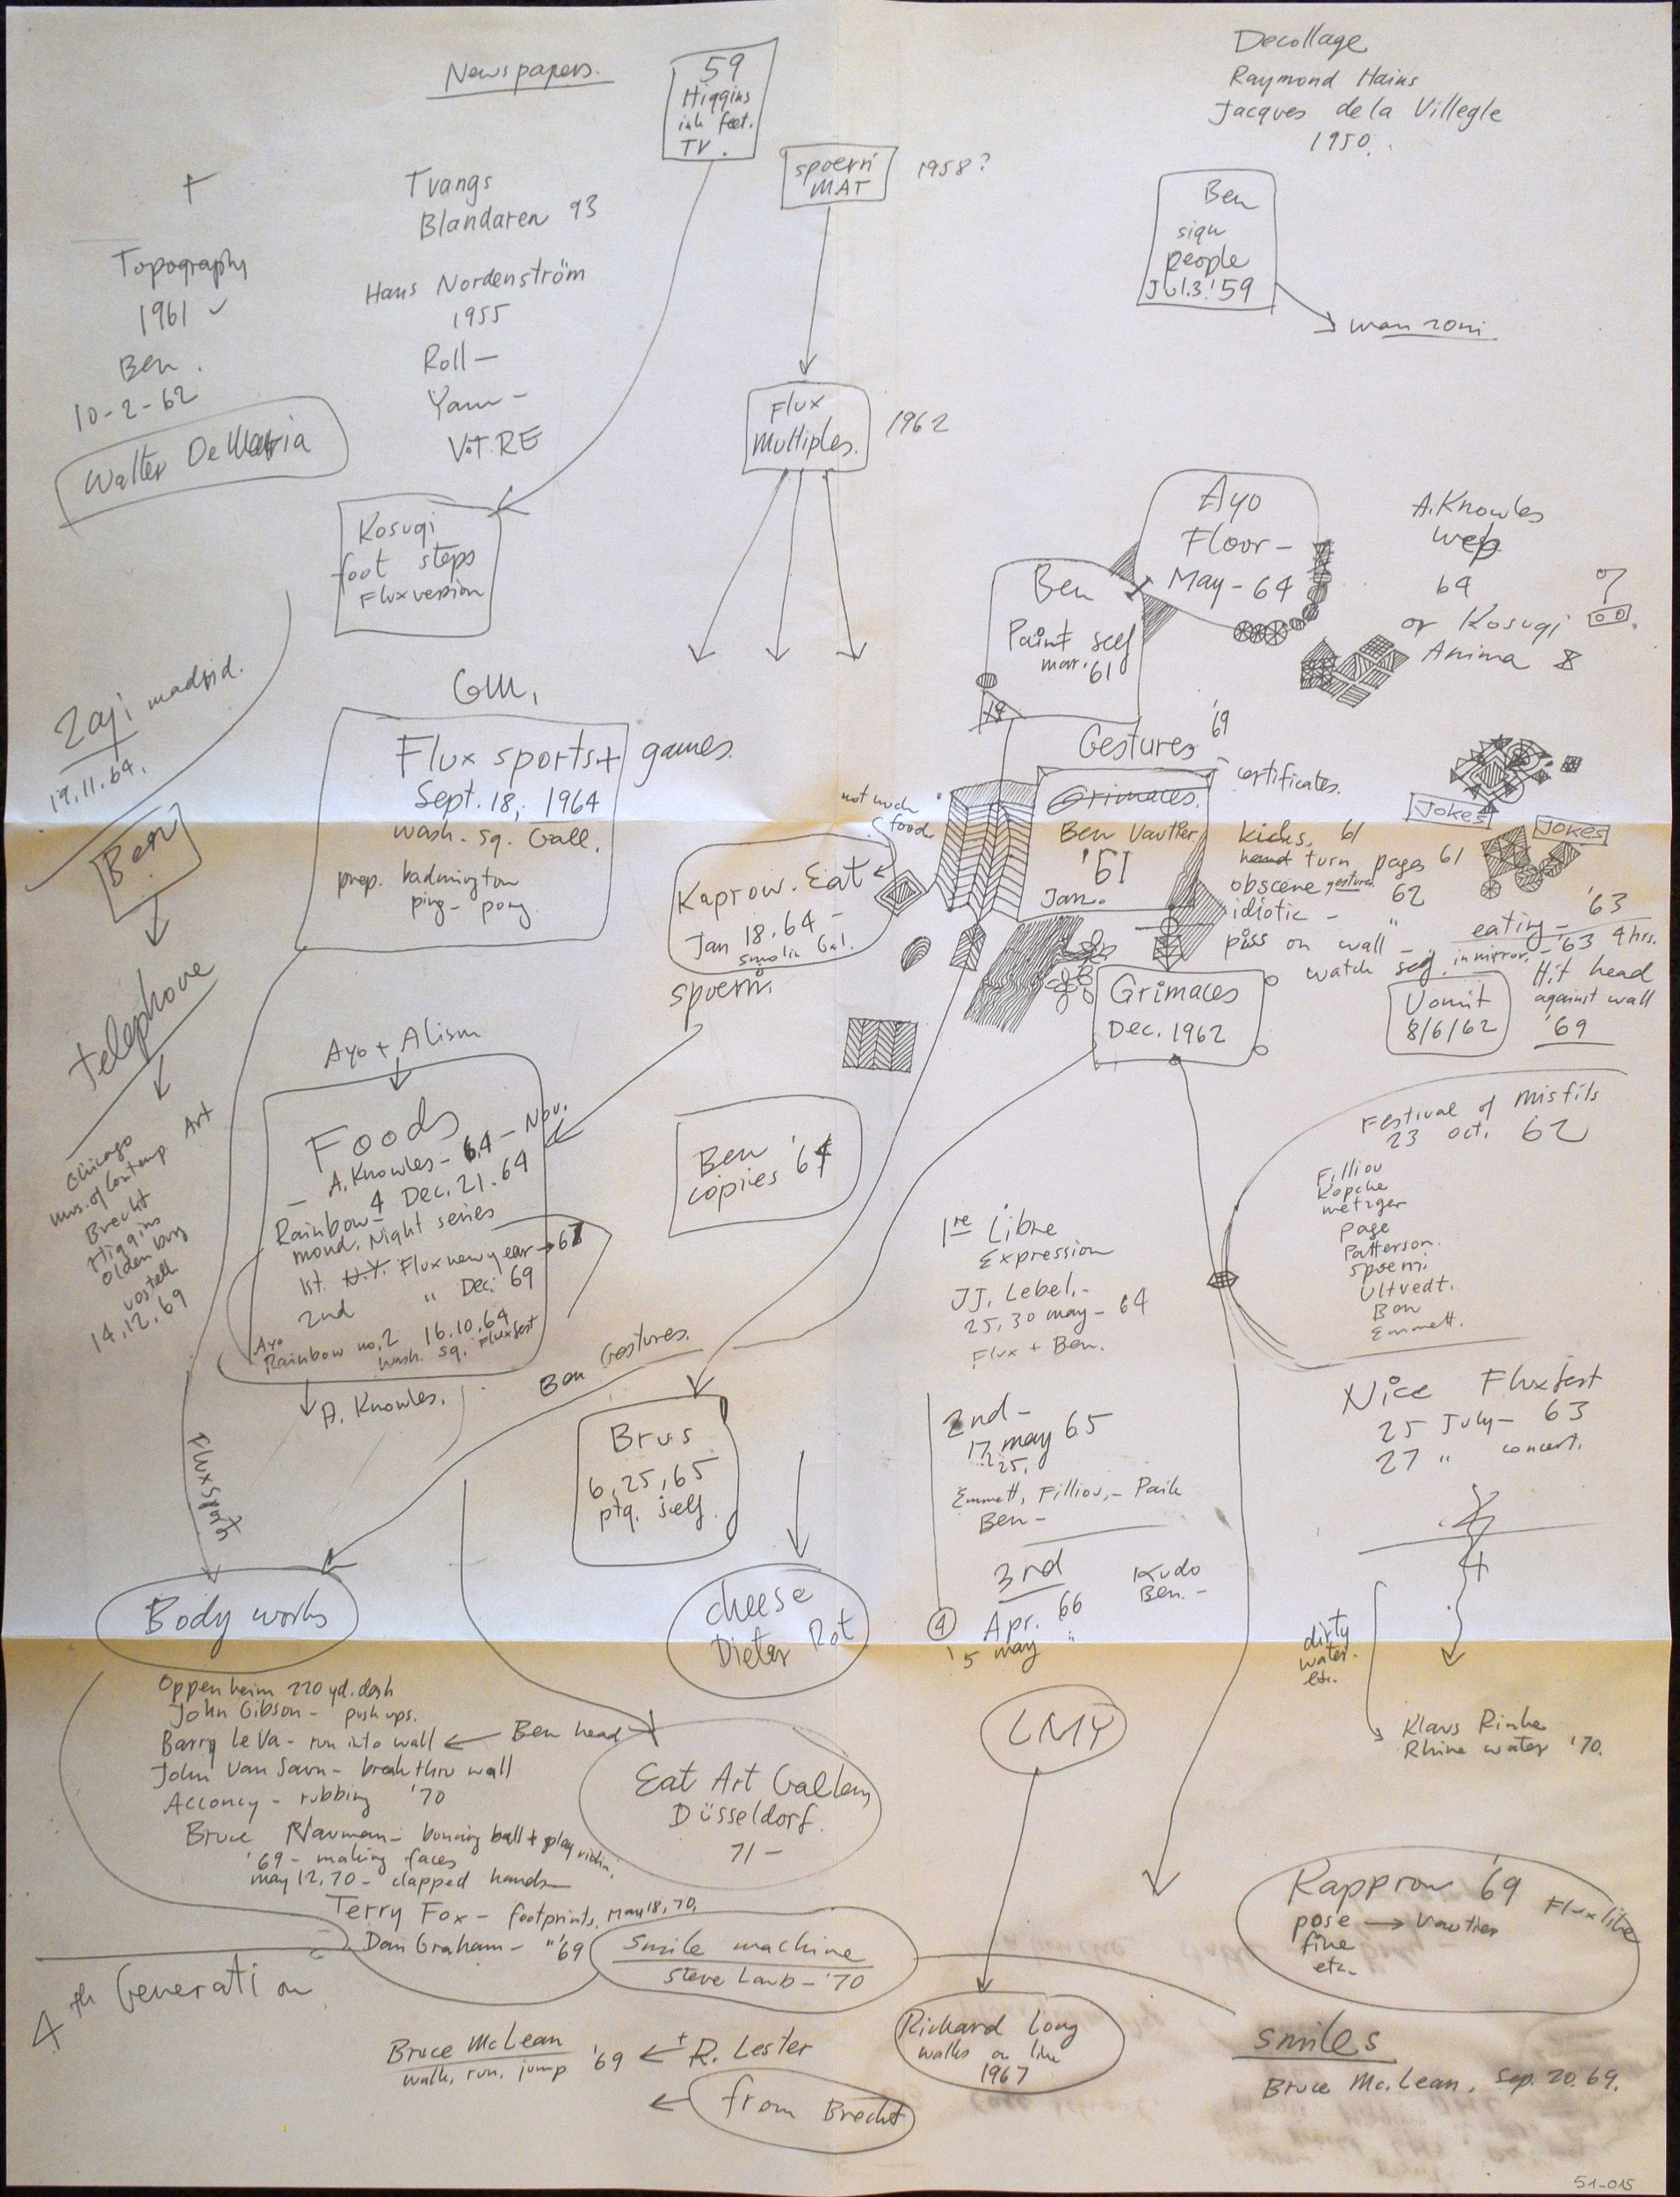 Newspapers.
59
Higgins
ink feet.
TV.
spoerri
MAT
1958?
Decollage
Raymond Hains
Jacques de la Villegle
1950.
Ben
sign
people
Jul.3.'59
manzoni
+
Topography
1961 ✓
Ben.
10-2-62
Walter DeMaria
Tvangs
Blandaren 93
Hans Nordenström
1955
Roll -
Yam -
V.T.RE
Flux
Multiples.
1962
Kosugi
foot steps
Fluxversion
Ayo
Floor -
May - 64
Ben
Paint self
mar. '61
A. Knowles
64
or Kosugi
Anima 8
Zaj madrid.
19.11.64.
Ben
telephone
Chicago
mus. of Contemp Art
Brecht
Higgins
Oldenburg
vostell
14.12.69
GM,
Flux sports + games.
Sept. 18, 1964
wash. sq. Gall.
prep. badmington
ping - pong
not much
food
Kaprow. Eat
Jan 18. 64 -
Smolin Gal.
spoerri
Gestures '69
Grimaces.
Ben Vautier
'61
Jan.
certificates.
JOKES
JOKES
kicks, 61
hand turn pages 61
obscene gestures 62
idiotic - "
piss on wall -
eating - '63
watch self in mirror - '63 4 hrs.
Hit head
against wall
'69
Vomit
8/6/62
Grimaces
Dec. 1962
Ayo + Alison
Foods
- A. Knowles - 64 - Nov.
Rainbow - 4 Dec. 21. 64
mond. Night series
1st. N.Y. Flux new year → 67
2nd " Dec. 69
Ayo
Rainbow no. 2 16.10.64
wash. sq. Fluxfest
A. Knowles.
Ben
copies '64
Festival of misfits
23 oct. 62
Filliou
Kopcke
metzger
page
Patterson.
spoerri
Ultvedt.
Ben
Emmett.
1re Libre
Expression
JJ. Lebel. -
25, 30 may - 64
Flux + Ben.
2nd -
17 may 65
25.
Emmett, Filliou, - Paik
Ben -
3rd
Apr. 66
④ '5 may "
Kudo
Ben. -
Nice Fluxfest
25 July - 63
27 " concert.
Ben Gestures.
Fluxsports
Brus
6, 25, 65
ptg. self.
cheese
Dieter Rot
Body works
Oppenheim 220 yd. dash
John Gibson - push ups.
Barry Le Va - run into wall ← Ben head
John Van Saun - break thru wall
Acconcy - rubbing '70
Bruce Nauman - bouncing ball + play violin.
'69 - making faces
may 12, 70 - clapped hands
Terry Fox - footprints. May 18, 70.
Dan Graham - " '69
Eat Art Gallery
Düsseldorf.
71 -
LMY
dirty
water.
etc.
Klaus Rinke
Rhine water '70.
Smile machine
Steve Laub - '70
Kapprow '69
Flux like
pose → Vautier
fine
etc.
4th Generation
Bruce McLean '69 ← + R. Lester
walk, run, jump
← from Brecht
Richard Long
walks on line
1967
smiles
Bruce Mc. Lean. Sep. 20. 69.
51-015